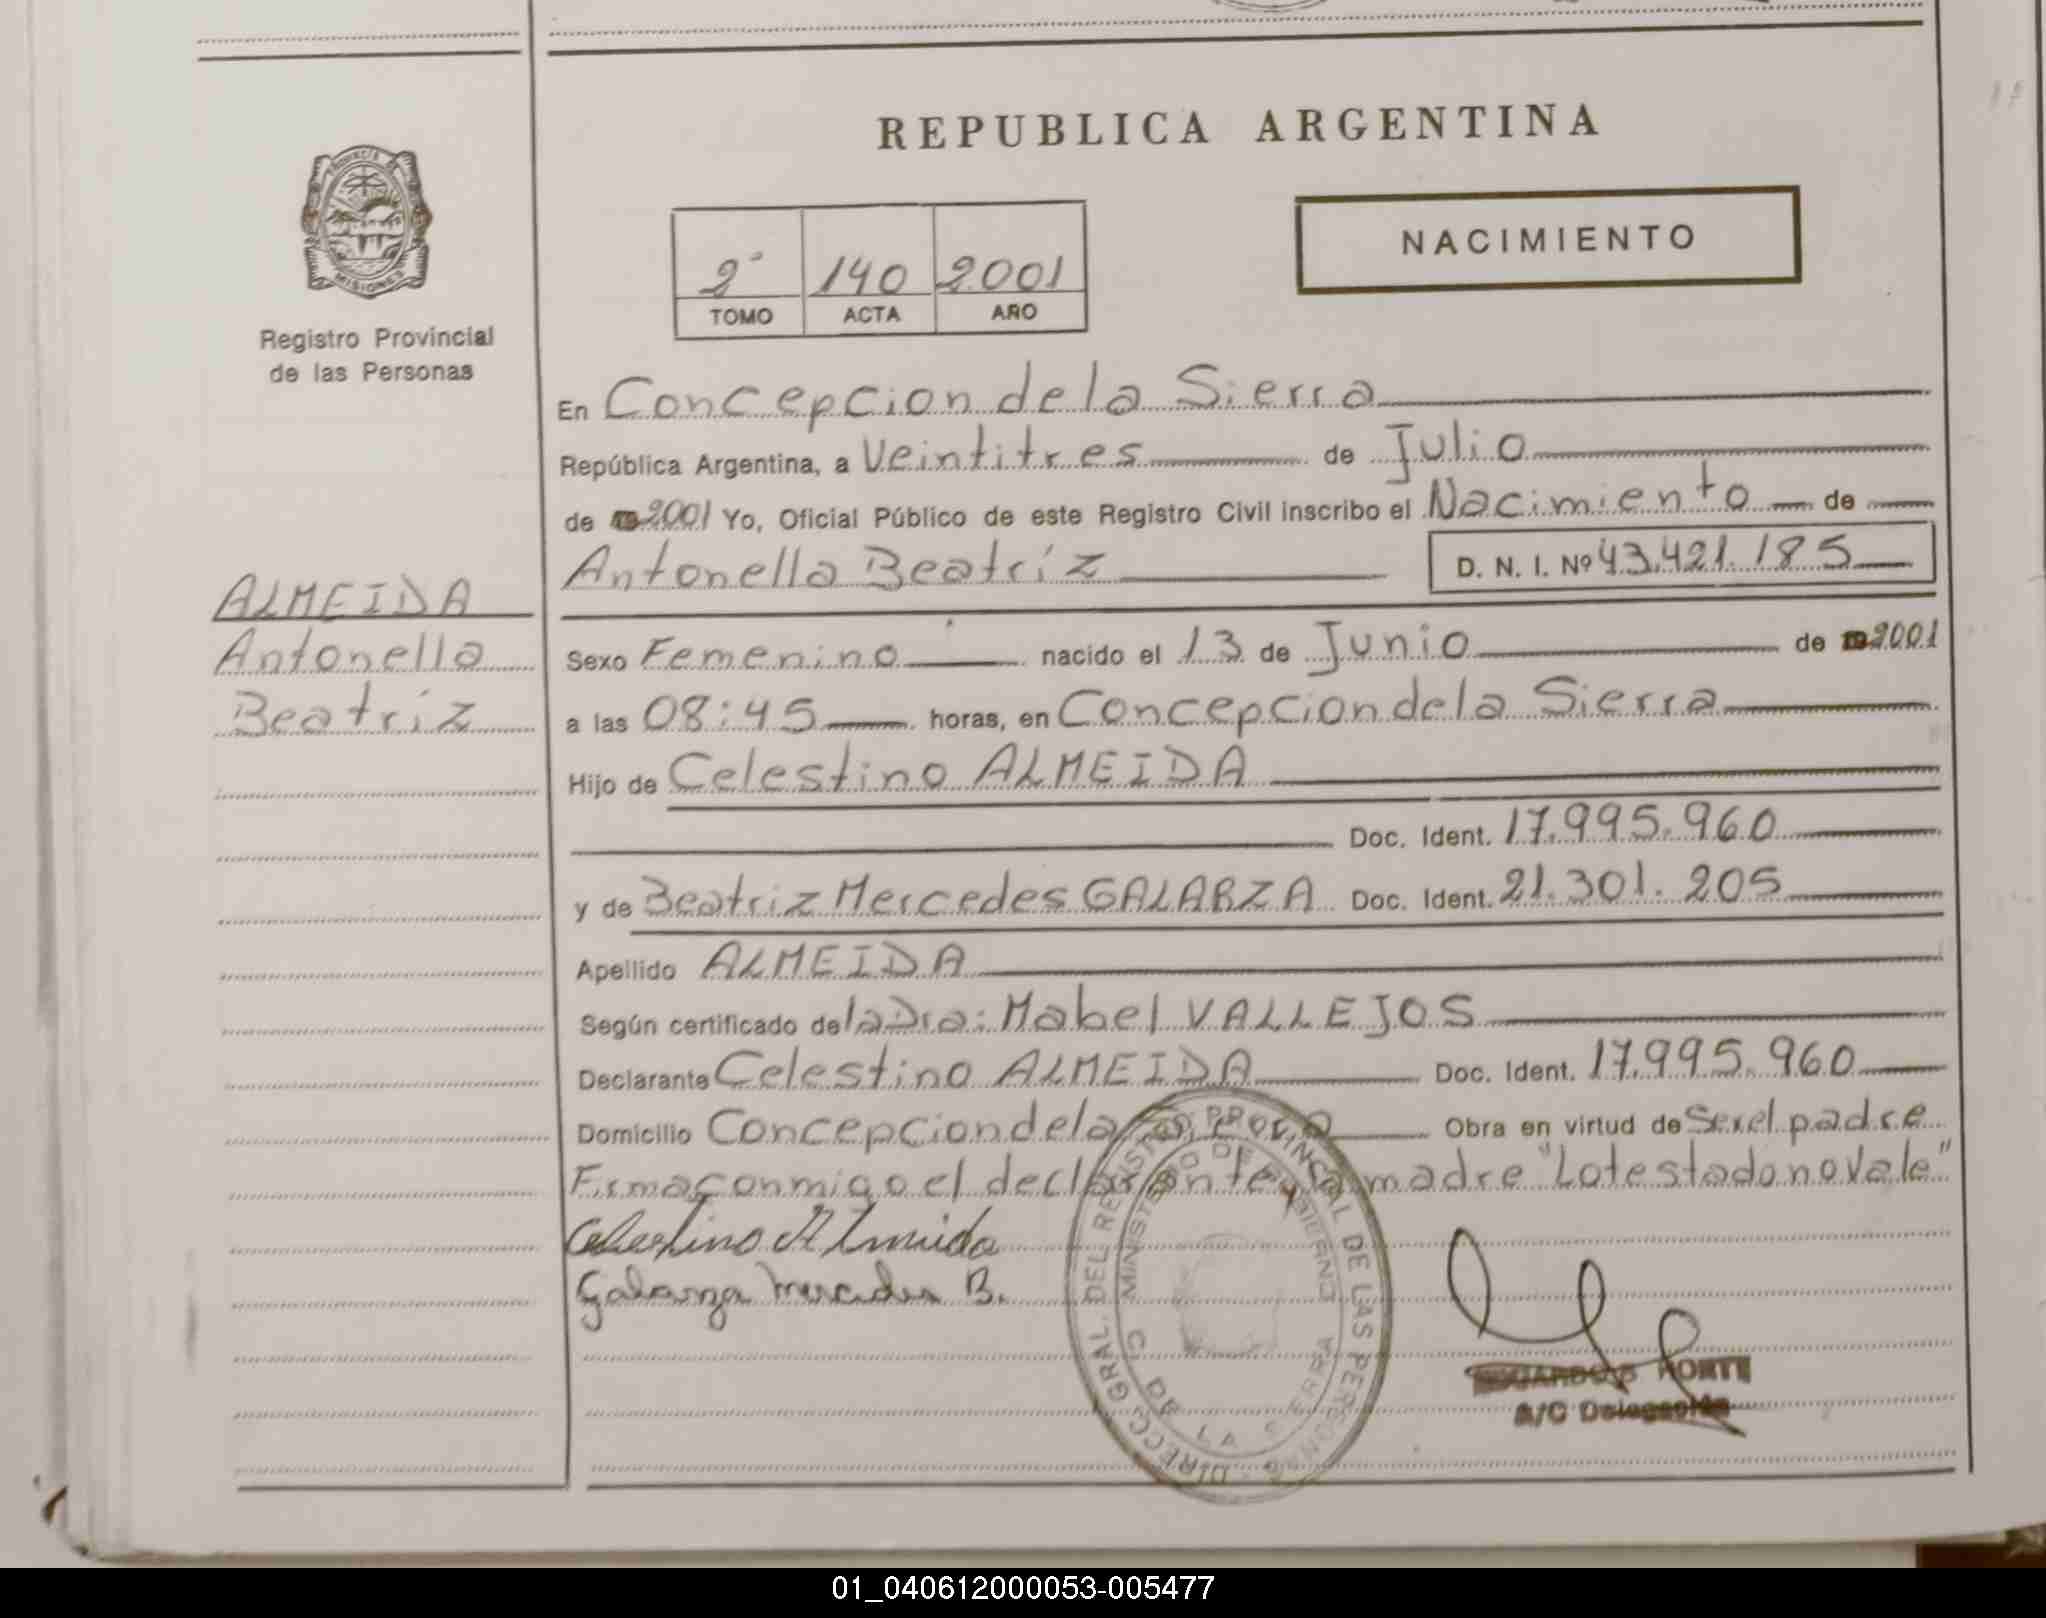 REPUBLICA ARGENTINA
NACIMIENTO
2º 140 2001
TOMO ACTA AÑO
PROVINCIA DE MISIONES
Registro Provincial
de las Personas
ALMEIDA
Antonella
Beatríz
En Concepcion de la Sierra
República Argentina, a Veintitres de Julio
de 2001 Yo, Oficial Público de este Registro Civil inscribo el Nacimiento de
Antonella Beatríz D. N. I. Nº 43.421.185
Sexo Femenino nacido el 13 de Junio de 2001
a las 08:45 horas, en Concepcion de la Sierra
Hijo de Celestino ALMEIDA
Doc. Ident. 17.995.960
y de Beatriz Mercedes GALARZA Doc. Ident. 21.301.205
Apellido ALMEIDA
Según certificado de la Dra: Mabel VALLEJOS
Declarante Celestino ALMEIDA Doc. Ident. 17.995.960
Domicilio Concepcion de la Obra en virtud de Ser el padre
Firma conmigo el declarante y la madre "Lo testado no Vale"
Celestino Almeida
Galarza Mercedes B.
DIRECC. GRAL. DEL REGISTRO PROVINCIAL DE LAS PERSONAS
MINISTERIO DE GOBIERNO
C DE LA SIERRA
A/C Delegación
01_040612000053-005477